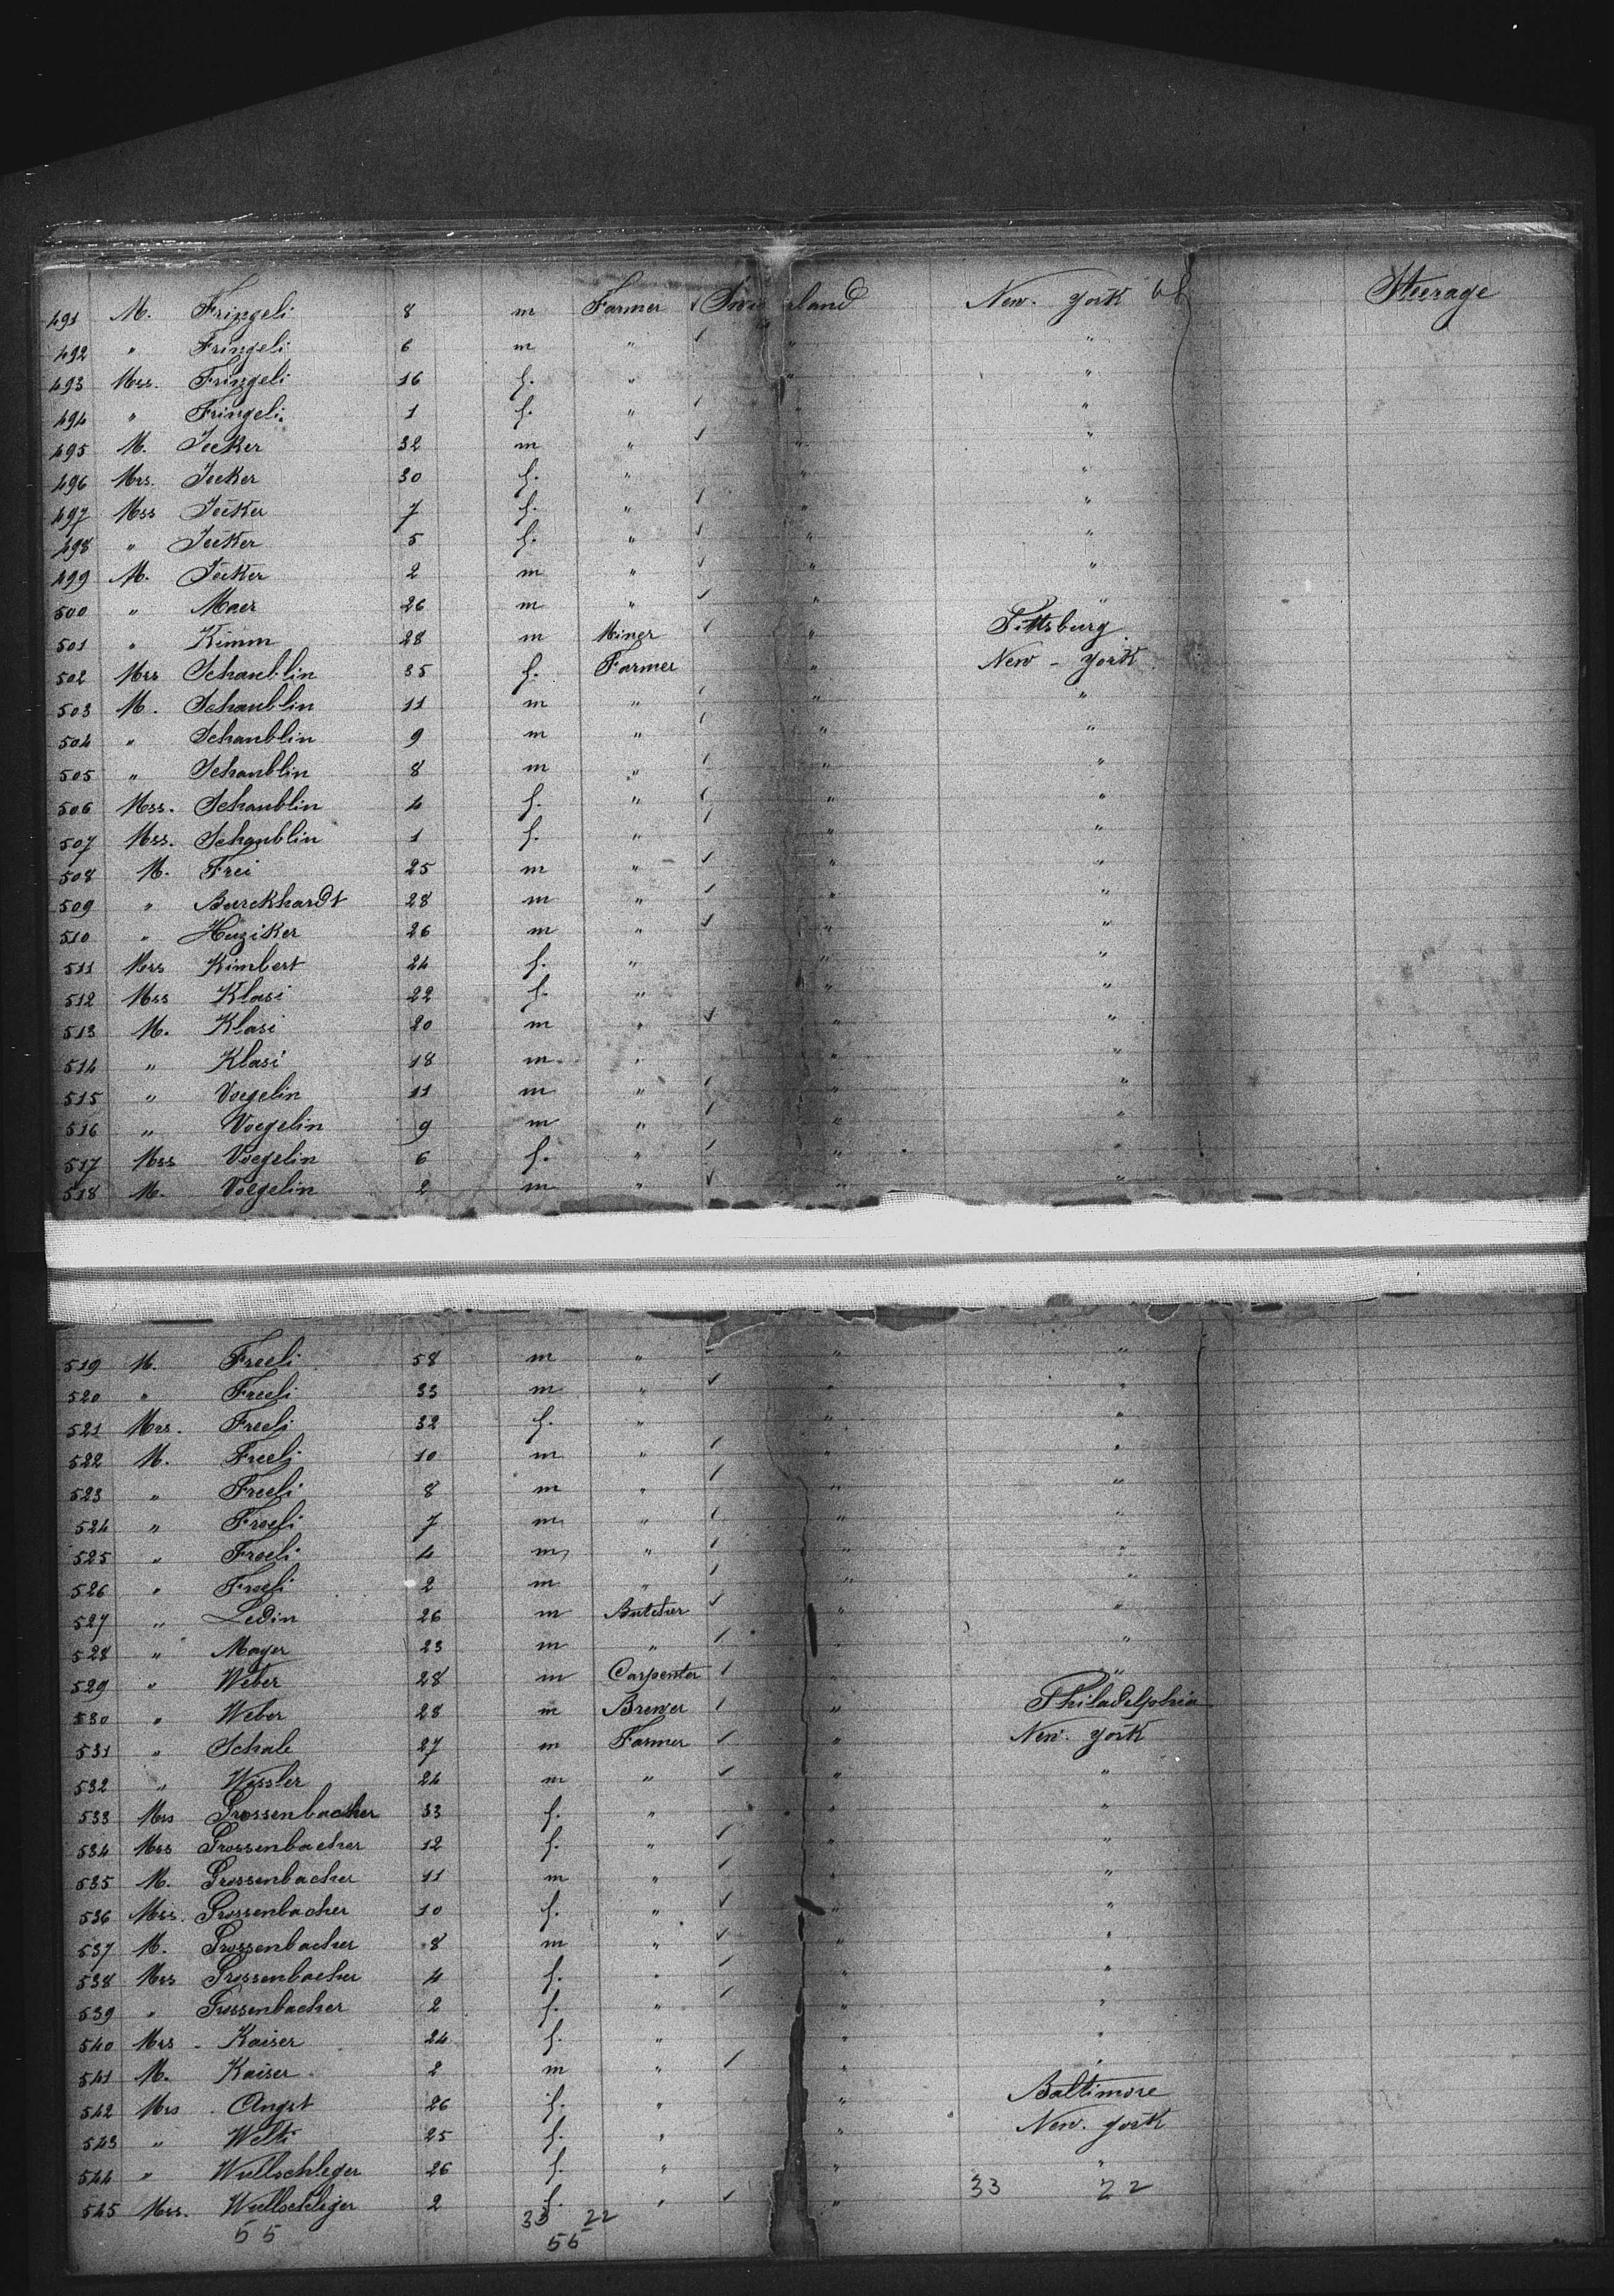 491 M. Fringeli 8 m Farmer Switzerland New-York Steerage
492 " Fringeli 6 m " " "
493 Mss. Fringeli 16 f. " " "
494 " Fringeli 1 f. " " "
495 M. Jecker 32 m " " "
496 Mrs. Jecker 30 f. " " "
497 Mss Jecker 7 f. " " "
498 " Jecker 5 f. " " "
499 M. Jecker 2 m " " "
500 " Maer 26 m " " "
501 " Kimm 28 m Miner " Pittsburg
502 Mrs Schaublin 35 f. Farmer " New-York
503 M. Schaublin 11 m " " "
504 " Schaublin 9 m " " "
505 " Schaublin 8 m " " "
506 Mss. Schaublin 4 f. " " "
507 Mss. Schaublin 1 f. " " "
508 M. Frei 25 m " " "
509 " Burckhardt 28 m " " "
510 " Huziker 26 m " " "
511 Mrs Kimbert 24 f. " " "
512 Mss Klasi 22 f. " " "
513 M. Klasi 20 m " " "
514 " Klasi 18 m " " "
515 " Voegelin 11 m " " "
516 " Voegelin 9 m " " "
517 Mss Voegelin 6 f. " " "
518 M. Voegelin 2 m " " "
519 M. Freeli 58 m " " "
520 " Freeli 33 m " " "
521 Mrs. Freeli 32 f. " " "
522 M. Freeli 10 m " " "
523 " Freeli 8 m " " "
524 " Freeli 7 m " " "
525 " Freeli 4 m " " "
526 " Freeli 2 m " " "
527 " Ledin 26 m Butcher " "
528 " Mayer 23 m " " "
529 " Weber 28 m Carpenter " "
530 " Weber 28 m Brewer " Philadelphia
531 " Schale 27 m Farmer " New-York
532 " Wissler 24 m " " "
533 Mrs Grossenbacher 33 f. " " "
534 Mss Grossenbacher 12 f. " " "
535 M. Grossenbacher 11 m " " "
536 Mss. Grossenbacher 10 f. " " "
537 M. Grossenbacher 8 m " " "
538 Mss Grossenbacher 4 f. " " "
539 " Grossenbacher 2 f. " " "
540 Mrs Kaiser 24 f. " " "
541 M. Kaiser 2 m " " "
542 Mrs Angst 26 f. " " Baltimore
543 " Welti 25 f. " " New-York
544 " Wullschleger 26 f. " " "
545 Mss. Wullschleger 2 f. " "
33 22
55 33 22
55